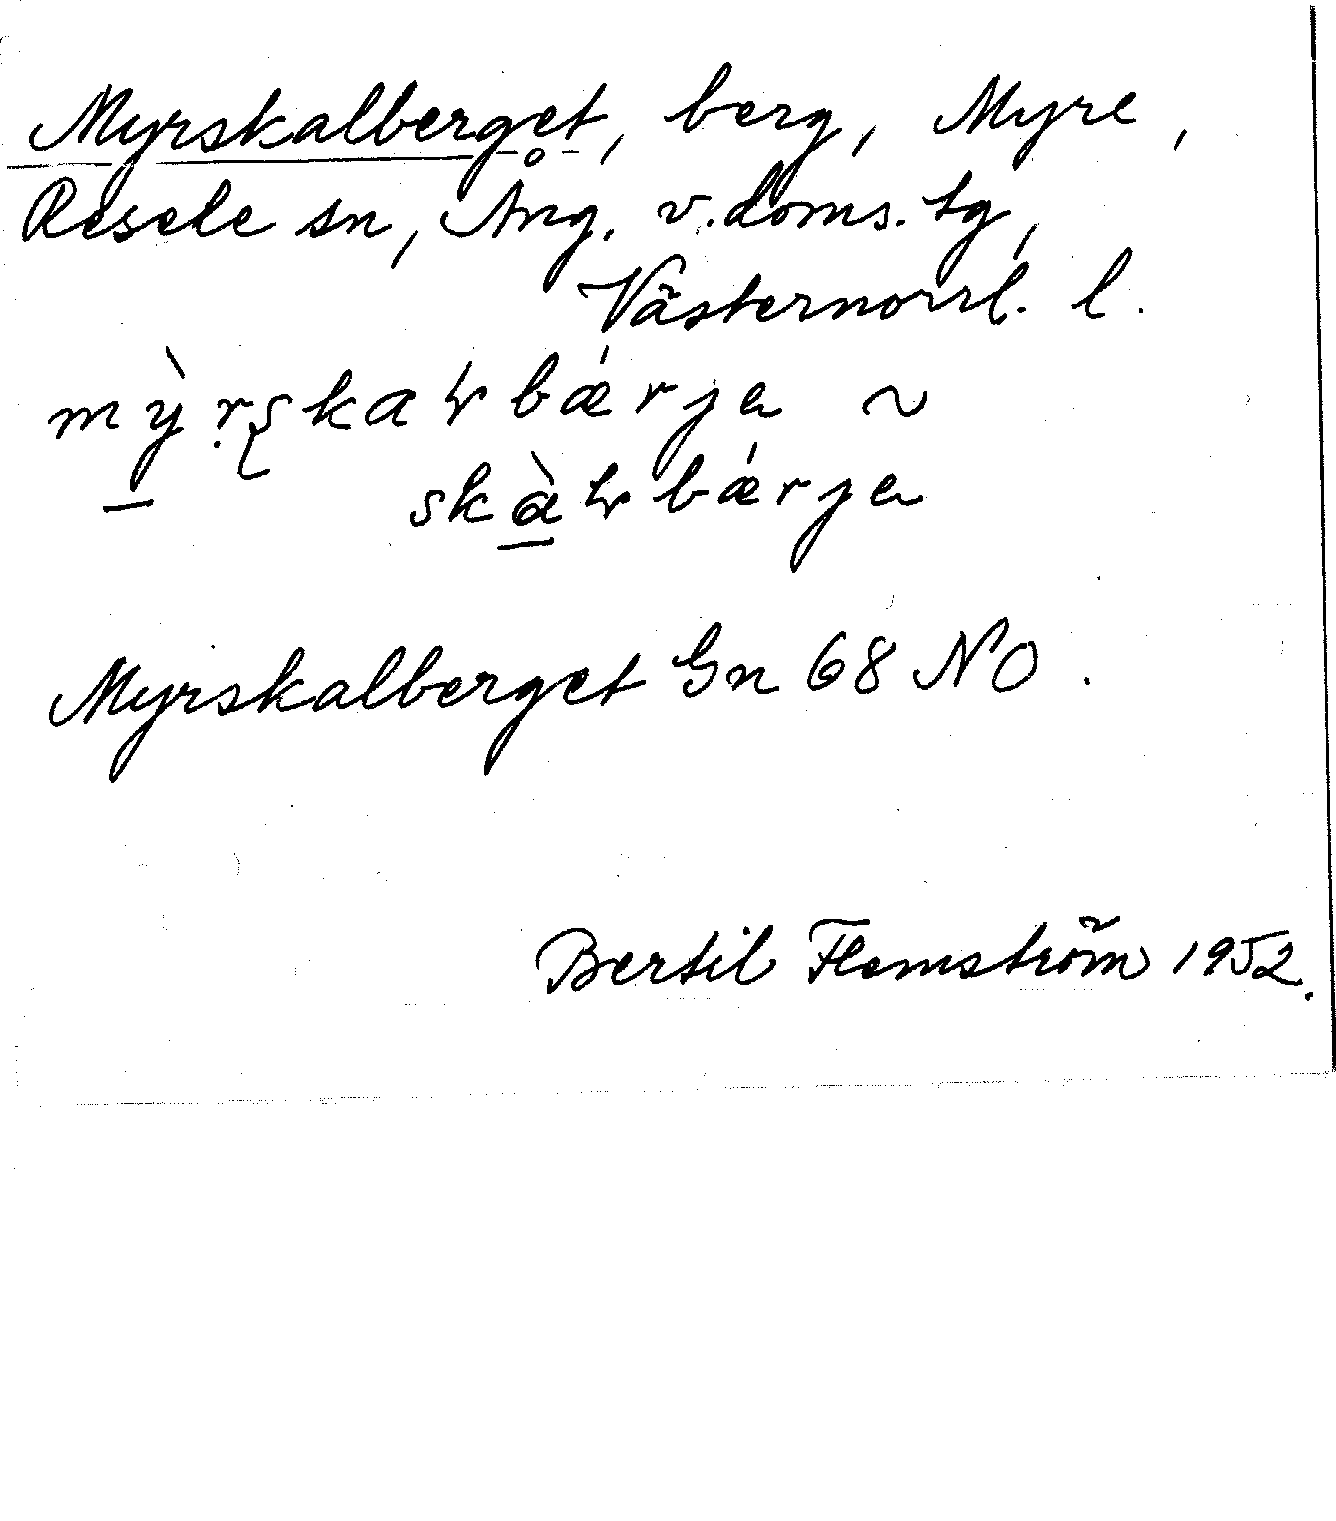 Myrskalberget, berg, Myre,
Resele sn, Ång. v. doms. tg,
Västernorrl. l.
mỳṛʂkaꞎbǽrjɐ ~
skàꞎbǽrjɐ
Myrskalberget Gn 68 NO.
Bertil Flemström 1952.